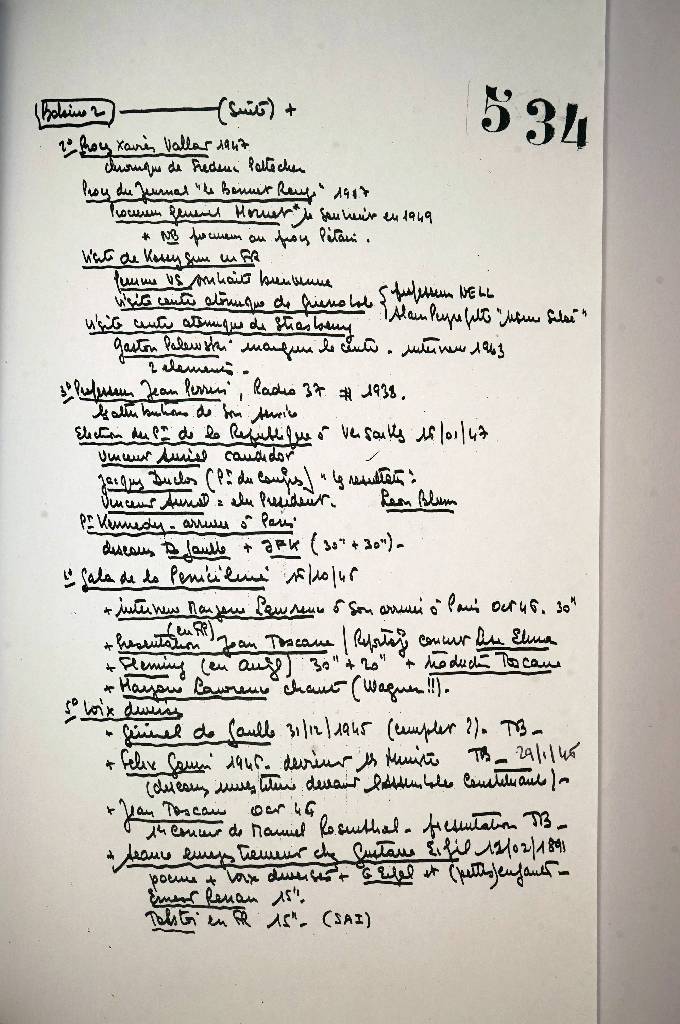 534
Bobine 2 (Suite) +
2° Procès Xavier Vallat 1947
chronique de Frédéric Pottecher
Procès du Journal "le Bonnet Rouge" 1917
Procureur général Mornet * le souvenir en 1949
* NB procureur au procès Pétain.
Visite de Kossyguine en FR
femme US souhaite bienvenue
Visite centre atomique de Grenoble { professeur NEEL
Alain Peyrefitte
Visite centre atomique de Strasbourg
Gaston Palewski inaugure le centre. interview 1963
2 éléments.
3° Professeur Jean Perrin, Radio 37 # 1938.
les attributions de son service
Election du Pt de la République à Versailles 16/01/47
Vincent Auriol candidat
Jacques Duclos (Pt du Congrès) "les résultats":
Vincent Auriol = élu Président. Léon Blum
Pt Kennedy - arrivée à Paris
discours De Gaulle + JFK (30" + 30") -
Gala de la Pénicilline 15/10/45
+ interview Marjorie Lawrence à son arrivée à Paris oct 45. 30"
(en FR)
+ Présentation Jean Toscane / Reportage concert Lise Elina
+ Fleming (en angl) 30" + 20" + traduction Toscane
+ Marjorie Lawrence chante (Wagner !!).
5° Voix diverses
+ Général de Gaulle 31/12/1945 (complet ?). TB -
+ Félix Gouin 1946. devient 1er Ministre TB - 29/1/46
(discours investiture devant l'assemblée constituante) -
+ Jean Toscane oct 46
1er concert de Manuel Rosenthal - présentation TB -
+ séance enregistrement chez Gustave Eiffel 12/02/1891
poème + voix diverses + G Eiffel et (petits) enfants -
Ernest Renan 15".
Tolstoï en FR 15" - (SAI)